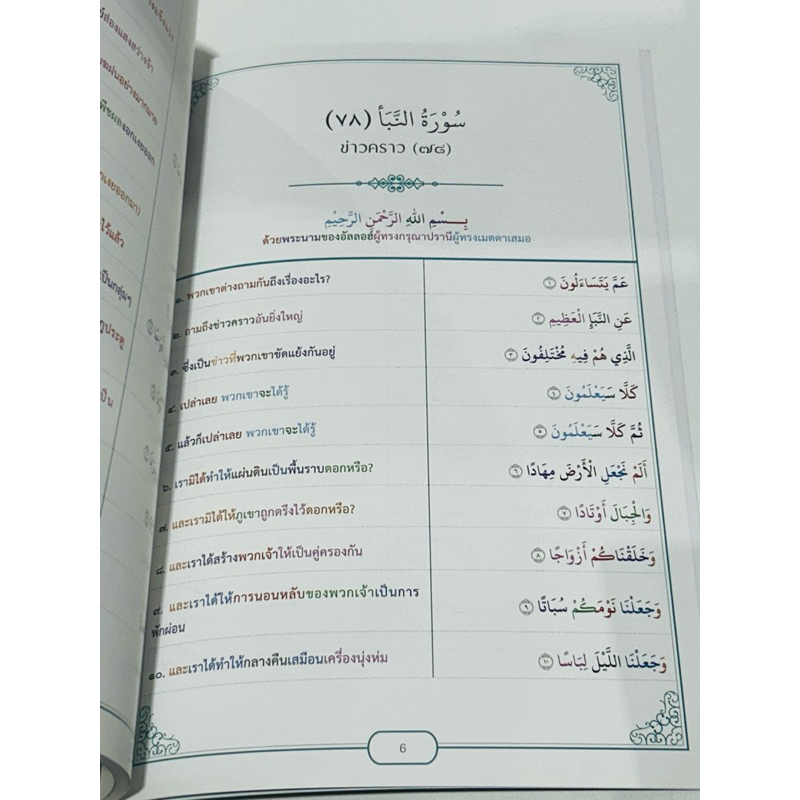 سُوْرَةُ النَّبَأ (٧٨)
ข่าวคราว (๗๘)
بِـــسْمِ اللهِ الرَّحْمَنِ الرَّحِيْمِ
ด้วยพระนามของอัลลอฮ์ผู้ทรงกรุณาปรานีผู้ทรงเมตตาเสมอ
عَمَّ يَتَسَاءَلُونَ ١
๑. พวกเขาต่างถามกันถึงเรื่องอะไร?
عَنِ النَّبَإِ الْعَظِيمِ ٢
๒. ถามถึงข่าวคราวอันยิ่งใหญ่
الَّذِي هُمْ فِيهِ مُخْتَلِفُونَ ٣
๓. ซึ่งเป็นข่าวที่พวกเขาขัดแย้งกันอยู่
كَلَّا سَيَعْلَمُونَ ٤
๔. เปล่าเลย พวกเขาจะได้รู้
ثُمَّ كَلَّا سَيَعْلَمُونَ ٥
๕. แล้วก็เปล่าเลย พวกเขาจะได้รู้
أَلَمْ نَجْعَلِ الْأَرْضَ مِهَادًا ٦
๖. เรามิได้ทำให้แผ่นดินเป็นพื้นราบดอกหรือ?
وَالْجِبَالَ أَوْتَادًا ٧
๗. และเรามิได้ให้ภูเขาถูกตรึงไว้ดอกหรือ?
وَخَلَقْنَاكُمْ أَزْوَاجًا ٨
๘. และเราได้สร้างพวกเจ้าให้เป็นคู่ครองกัน
وَجَعَلْنَا نَوْمَكُمْ سُبَاتًا ٩
๙. และเราได้ให้การนอนหลับของพวกเจ้าเป็นการ
พักผ่อน
وَجَعَلْنَا اللَّيْلَ لِبَاسًا ١٠
๑๐. และเราได้ทำให้กลางคืนเสมือนเครื่องนุ่งห่ม
6